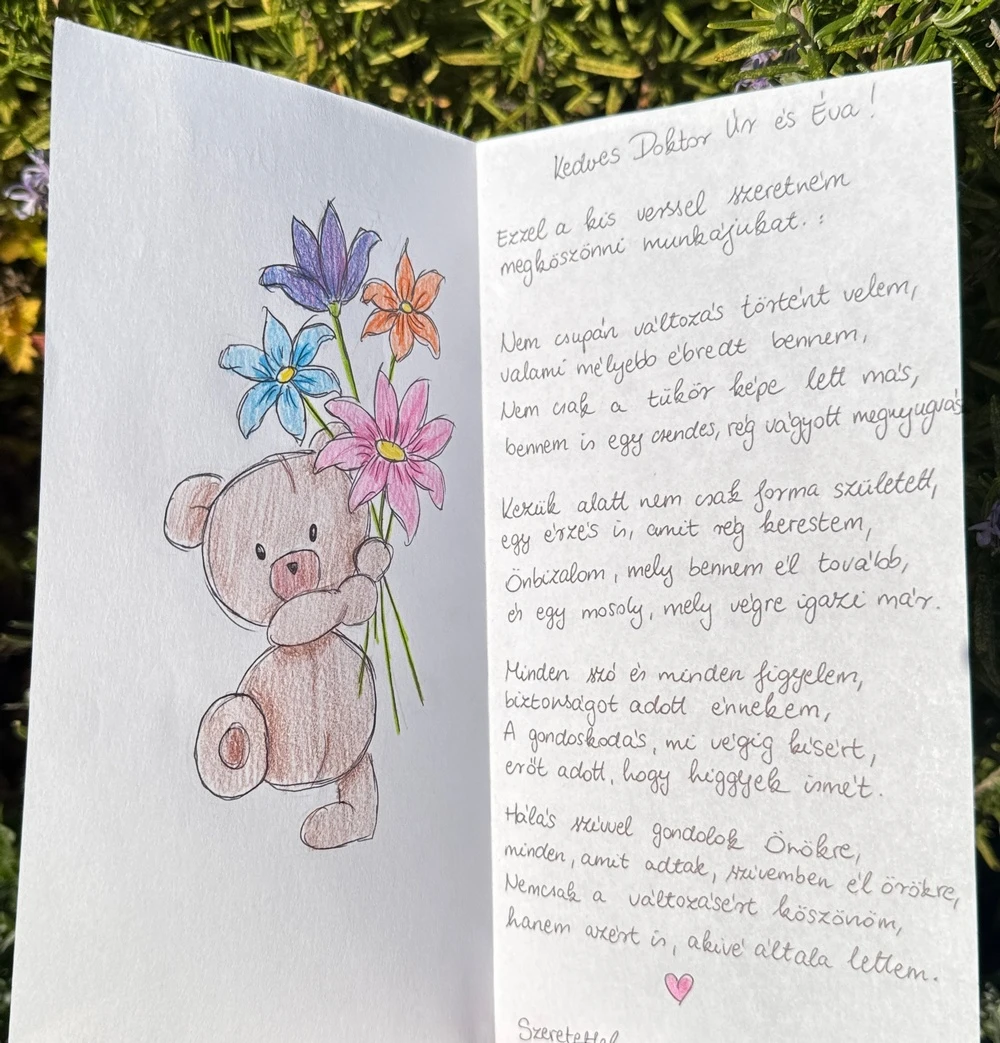 Kedves Doktor Úr és Éva!
Ezzel a kis verssel szeretném
megköszönni munkájukat. :
Nem csupán változás történt velem,
valami mélyebb ébredt bennem,
Nem csak a tükör képe lett más,
bennem is egy csendes, rég vágyott megnyugvás
Kezük alatt nem csak forma született,
egy érzés is, amit rég kerestem,
Önbizalom, mely bennem él tovább,
és egy mosoly, mely végre igazi már.
Minden szó és minden figyelem,
biztonságot adott énnekem,
A gondoskodás, mi végig kísért,
erőt adott, hogy higgyek ismét.
Hálás szívvel gondolok Önökre,
minden, amit adtak, szívemben él örökre,
Nemcsak a változásért köszönöm,
hanem azért is, akivé általa lettem.
Szeretettel